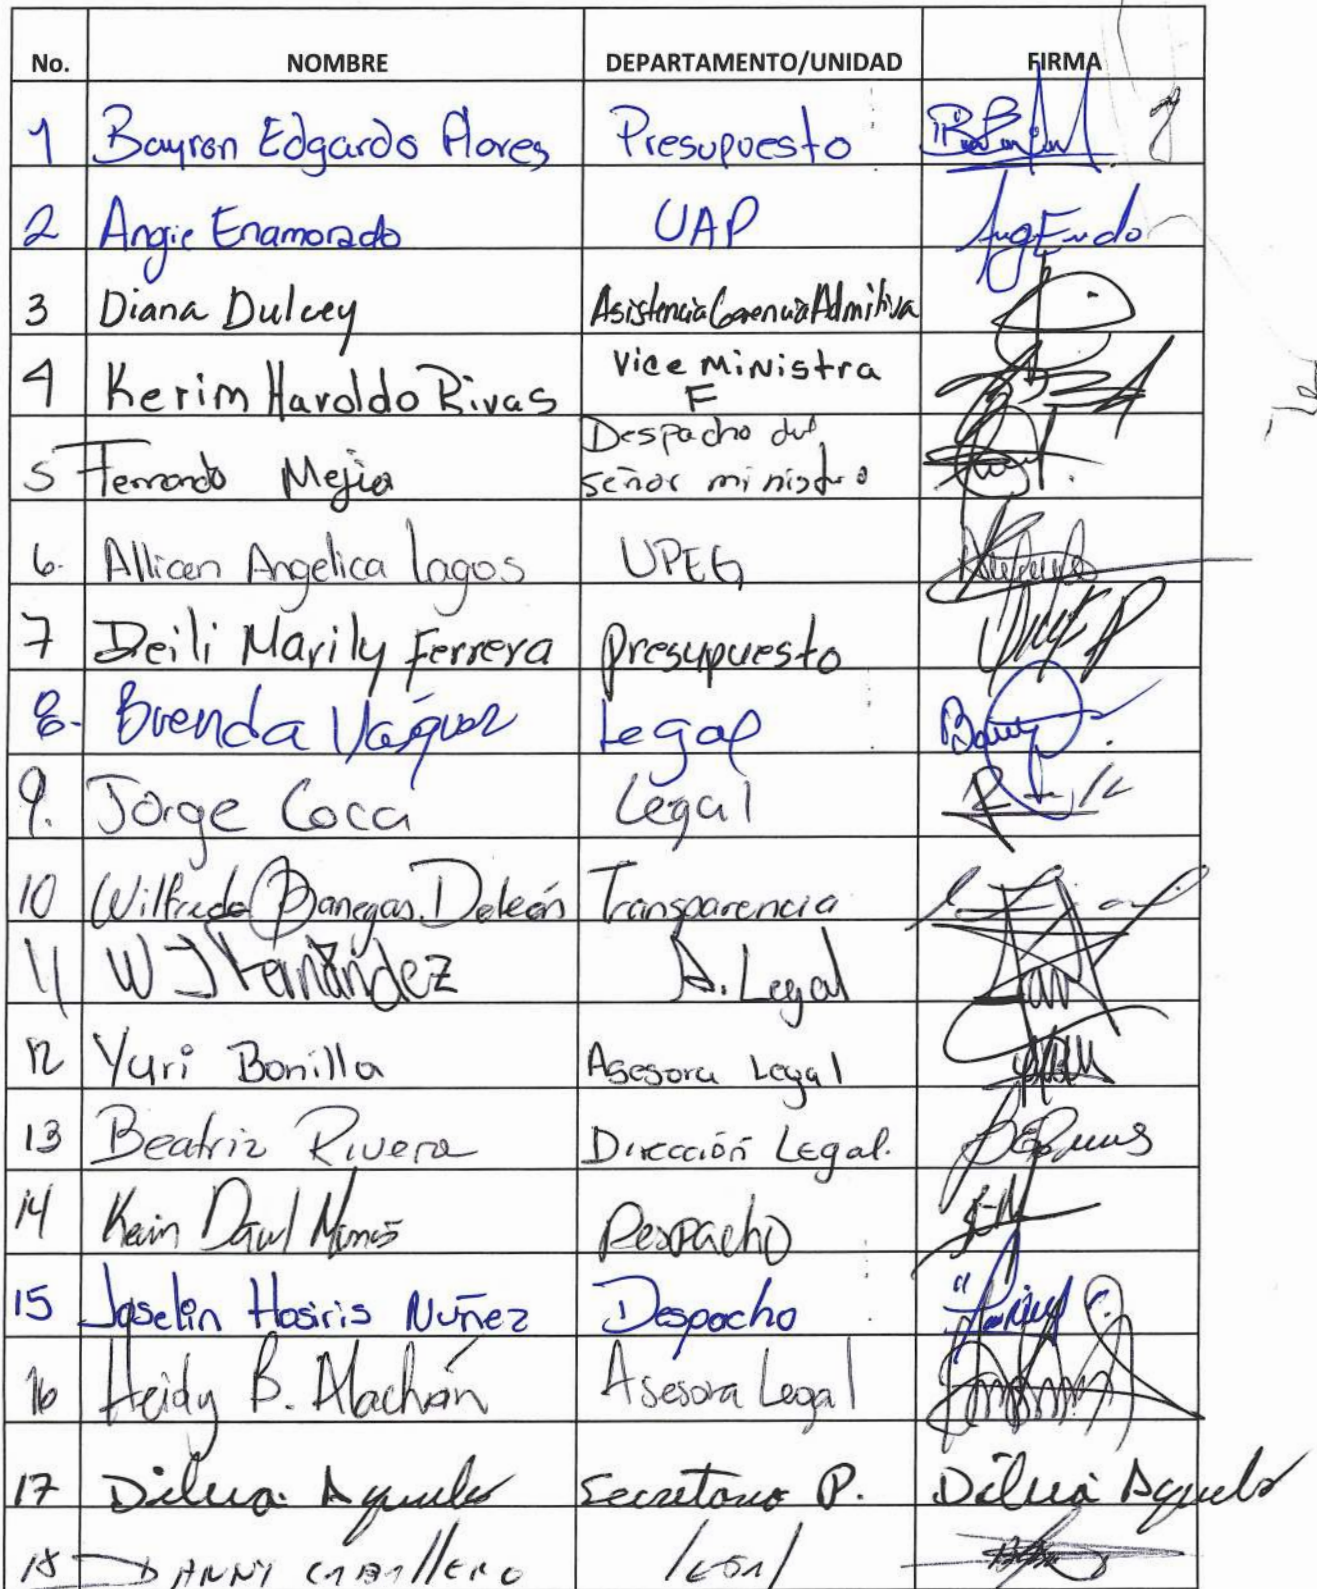 No. NOMBRE DEPARTAMENTO/UNIDAD FIRMA
1 Bayron Edgardo Flores Presupuesto
2 Angie Enamorado UAP
3 Diana Dulcey Asistencia Gerencia Admitiva
4 Kerim Haroldo Rivas Vice Ministra
F
5 Fernando Mejia Despacho del
señor ministro
6. Allicen Angelica Lagos UPEG
7 Deili Marily Ferrera Presupuesto
8- Brenda Vásquez Legal
9. Jorge Coca Legal
10 Wilfredo Banegas Deleón Transparencia
11 W J Hernández A. Legal
12 Yuri Bonilla Asesora Legal
13 Beatriz Rivera Dirección Legal.
14 Kevin Despacho
15 Joselin Hosiris Nuñez Despacho
16 Heidy B. Alachán Asesora Legal
17 Dilcia P.
18 DANNY CABALLERO